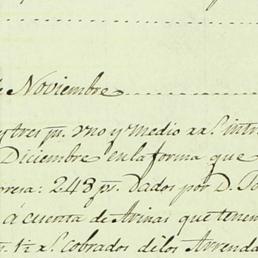 Noviembre
y tres p.s uno y medio xx.s intr
Diciembre en la forma que
presa: 248 p.s dados por D. Jo
á cuenta de Arinas que tenem
1½ x.s cobrados delos Arrenda